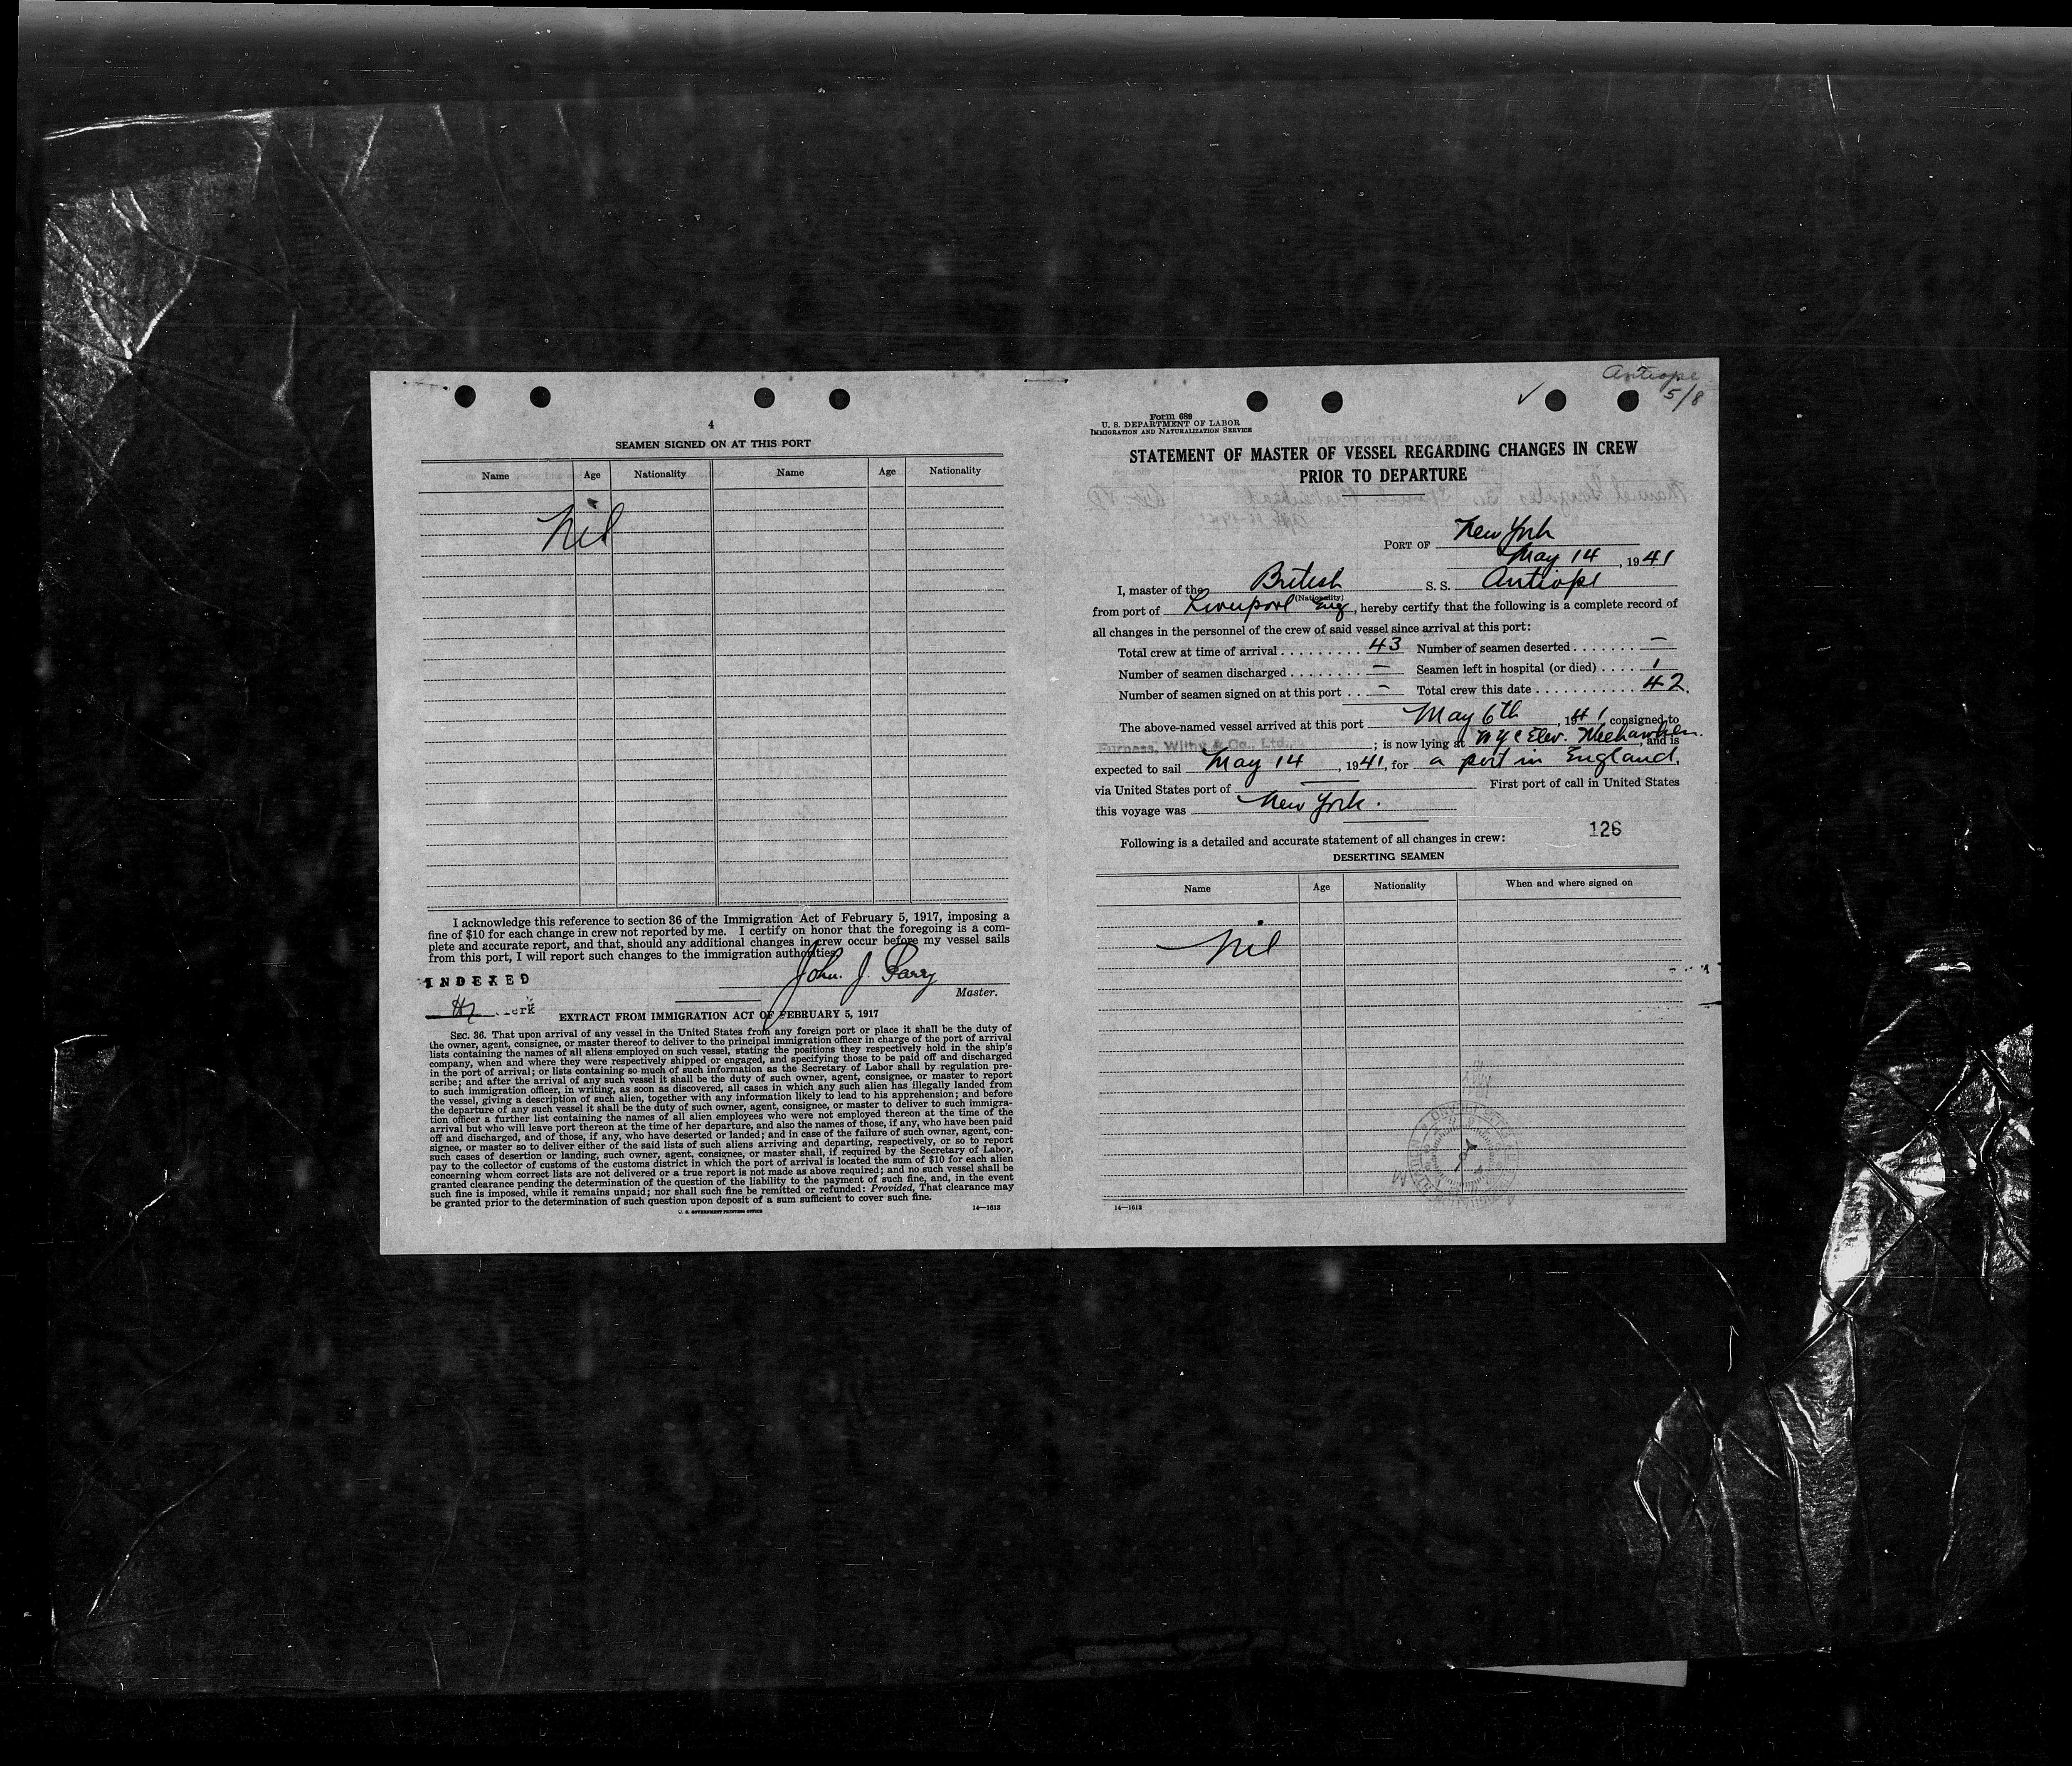 4
SEAMEN SIGNED ON AT THIS PORT
Name Age Nationality Name Age Nationality
Nil
I acknowledge this reference to section 36 of the Immigration Act of February 5, 1917, imposing a
fine of $10 for each change in crew not reported by me. I certify on honor that the foregoing is a com-
plete and accurate report, and that, should any additional changes in crew occur before my vessel sails
from this port, I will report such changes to the immigration authorities.
John. J. Garry
INDEXED
Master.
EXTRACT FROM IMMIGRATION ACT OF FEBRUARY 5, 1917
SEC. 36. That upon arrival of any vessel in the United States from any foreign port or place it shall be the duty of
the owner, agent, consignee, or master thereof to deliver to the principal immigration officer in charge of the port of arrival
lists containing the names of all aliens employed on such vessel, stating the positions they respectively hold in the ship's
company, when and where they were respectively shipped or engaged, and specifying those to be paid off and discharged
in the port of arrival; or lists containing so much of such information as the Secretary of Labor shall by regulation pre-
scribe; and after the arrival of any such vessel it shall be the duty of such owner, agent, consignee, or master to report
to such immigration officer, in writing, as soon as discovered, all cases in which any such alien has illegally landed from
the vessel, giving a description of such alien, together with any information likely to lead to his apprehension; and before
the departure of any such vessel it shall be the duty of such owner, agent, consignee, or master to deliver to such immigra-
tion officer a further list containing the names of all alien employees who were not employed thereon at the time of the
arrival but who will leave port thereon at the time of her departure, and also the names of those, if any, who have been paid
off and discharged, and of those, if any, who have deserted or landed; and in case of the failure of such owner, agent, con-
signee, or master so to deliver either of the said lists of such aliens arriving and departing, respectively, or so to report
such cases of desertion or landing, such owner, agent, consignee, or master shall, if required by the Secretary of Labor,
pay to the collector of customs of the customs district in which the port of arrival is located the sum of $10 for each alien
concerning whom correct lists are not delivered or a true report is not made as above required; and no such vessel shall be
granted clearance pending the determination of the question of the liability to the payment of such fine, and, in the event
such fine is imposed, while it remains unpaid; nor shall such fine be remitted or refunded: Provided, That clearance may
be granted prior to the determination of such question upon deposit of a sum sufficient to cover such fine.
U. S. GOVERNMENT PRINTING OFFICE 14—1613
Antiope
5/8
Form 689
U. S. DEPARTMENT OF LABOR
IMMIGRATION AND NATURALIZATION SERVICE
STATEMENT OF MASTER OF VESSEL REGARDING CHANGES IN CREW
PRIOR TO DEPARTURE
PORT OF New York
May 14, 1941
I, master of the British S. S. Antiope
(Nationality)
from port of Liverpool Eng, hereby certify that the following is a complete record of
all changes in the personnel of the crew of said vessel since arrival at this port:
Total crew at time of arrival . . . . . . . . . 43 Number of seamen deserted . . . . . . . —
Number of seamen discharged . . . . . . . . — Seamen left in hospital (or died) . . . . 1
Number of seamen signed on at this port . . — Total crew this date . . . . . . . . . . . 42.
The above-named vessel arrived at this port May 6th, 1941, consigned to
Furness, Withy & Co., Ltd. ; is now lying at NYC Elev. Weehawken, and is
expected to sail May 14, 1941, for a port in England,
via United States port of ——— First port of call in United States
this voyage was New York.
126
Following is a detailed and accurate statement of all changes in crew:
DESERTING SEAMEN
Name Age Nationality When and where signed on
Nil
14—1613